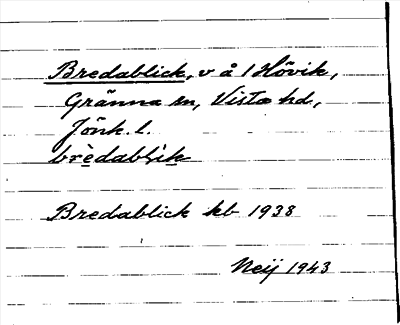 Bredablick, v å 1 Hövik,
Gränna sn, Vista hd,
Jönk. l.
brèdablik
Bredablick kb 1938
Neij 1943